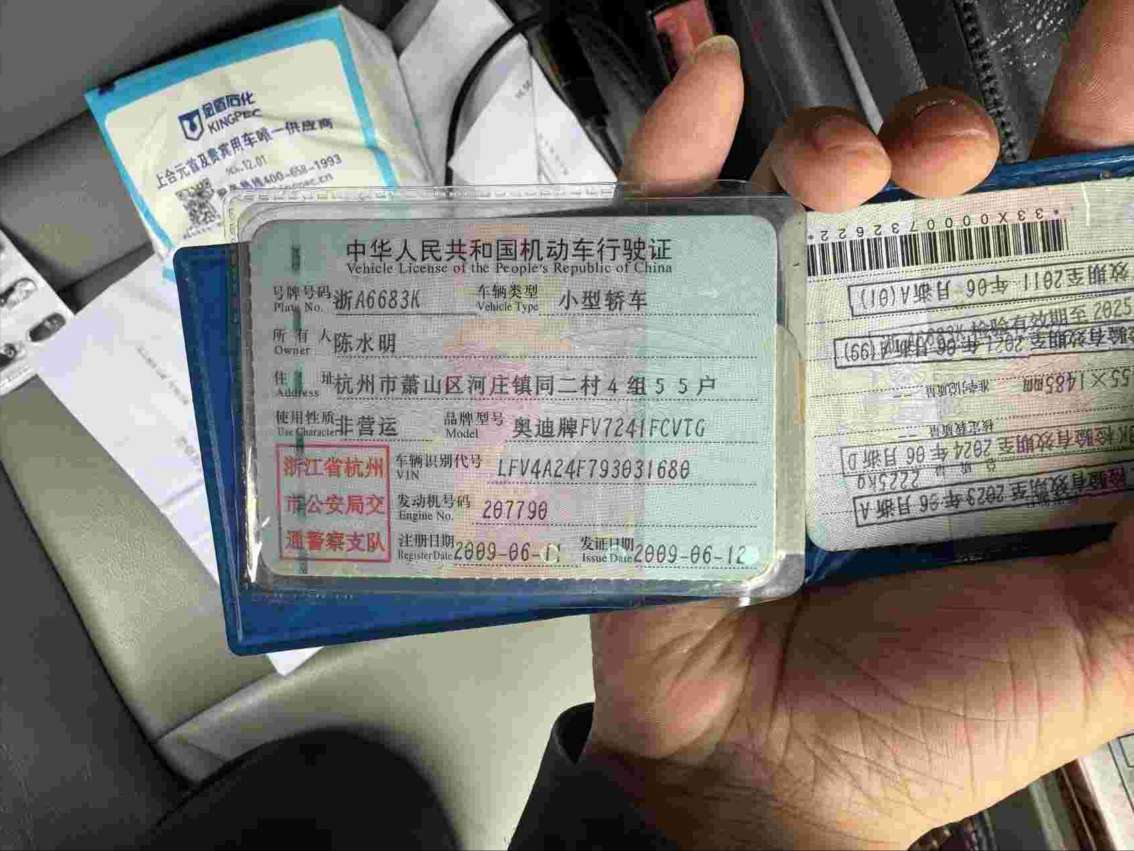 金盾石化
KINGPEC
上合元首及贵宾用车唯一供应商
400-658-1993
中华人民共和国机动车行驶证
Vehicle License of the People's Republic of China
号牌号码 浙A6683K 车辆类型 小型轿车
Plate No. Vehicle Type
所有人 陈水明
Owner
住址 杭州市萧山区河庄镇同二村4组55户
Address
使用性质 非营运 品牌型号 奥迪牌FV7241FCVTG
Use Character Model
浙江省杭州市公安局交通警察支队
车辆识别代号 LFV4A24F793031680
VIN
发动机号码 207790
Engine No.
注册日期 2009-06-11 发证日期 2009-06-12
Register Date Issue Date
*33X0000732622*
效期至2011年06月浙A(01)
检验有效期至2021年06月浙(99)
55×1485mm
检验有效期至2024年06月浙D
2225kg
检验有效期至2023年06月浙A